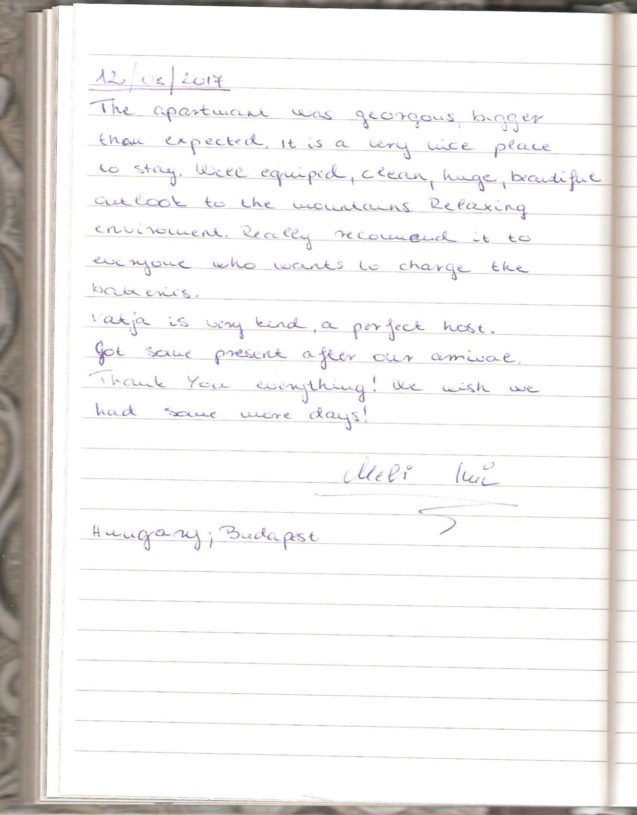 12/08/2017
The apartmant was georgous, bigger
than expected. It is a very nice place
to stay. Well equipid, clean, huge, beautiful
outlook to the mountains Relaxing
enviroment. Really recommend it to
everyone who wants to charge the
batteries.
is very kind, a perfect host.
Got some present after our arrival.
Thank You everything! We wish we
had some more days!
Meli
Hungary, Budapest